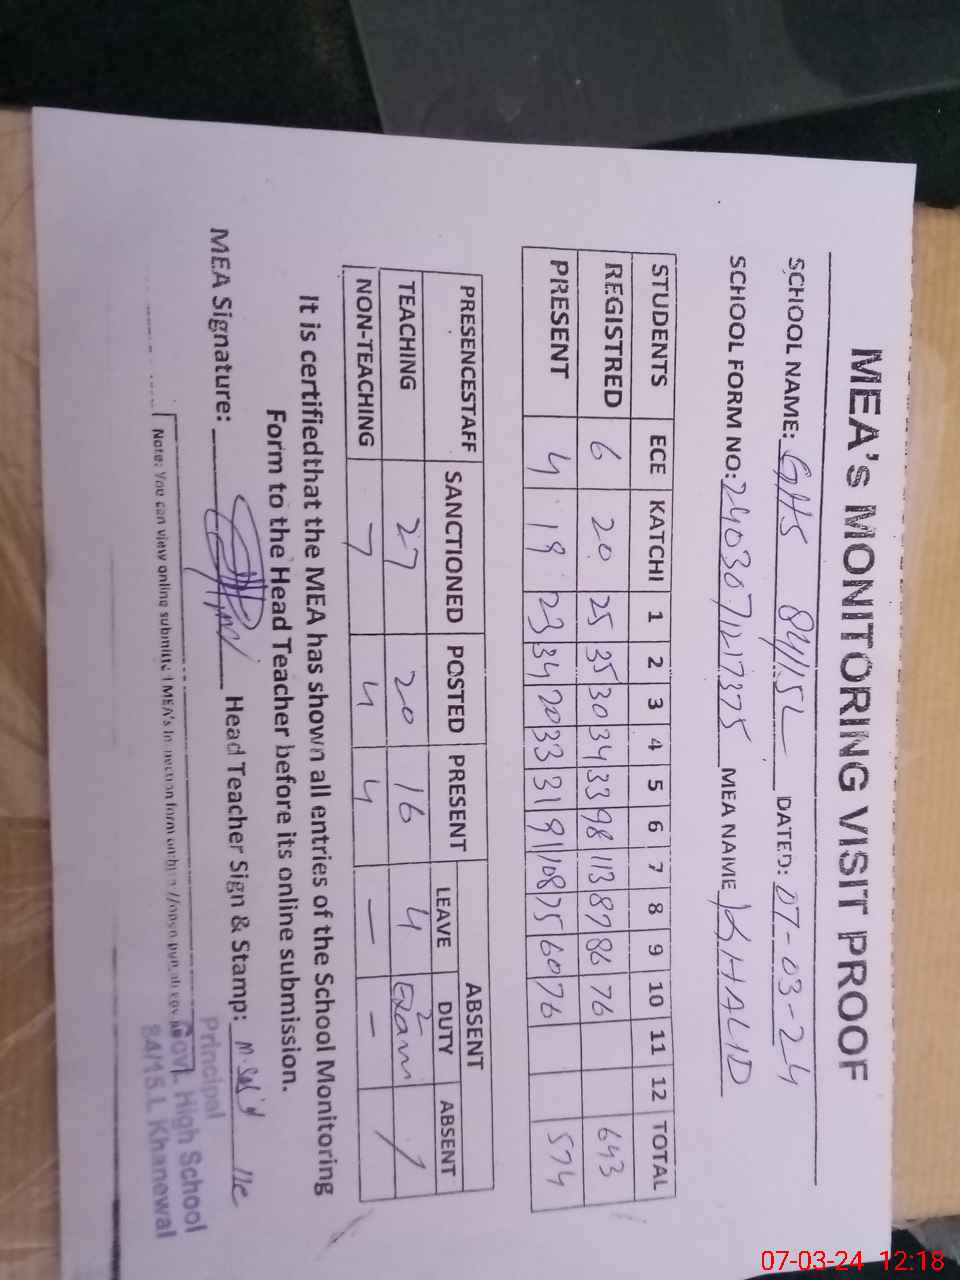 MEA's MONITORING VISIT PROOF
SCHOOL NAME: GHS 84/15L DATED: 07-03-24
SCHOOL FORM NO: 2403071217375 MEA NAME KHALID
STUDENTS ECE KATCHI 1 2 3 4 5 6 7 8 9 10 11 12 TOTAL
REGISTRED 6 20 25 35 30 34 33 98 113 87 86 76 643
PRESENT 4 19 23 34 20 33 31 91 108 75 60 76 574
PRESENCESTAFF SANCTIONED POSTED PRESENT ABSENT
LEAVE DUTY ABSENT
TEACHING 27 20 16 4 2 Exam /
NON-TEACHING 7 4 4 - -
It is certifiedthat the MEA has shown all entries of the School Monitoring
Form to the Head Teacher before its online submission.
MEA Signature: Head Teacher Sign & Stamp:
Principal
Govt. High School
84/15.L Khanewal
Note: You can view online submitted MEA's Inspection form on
07-03-24 12:18